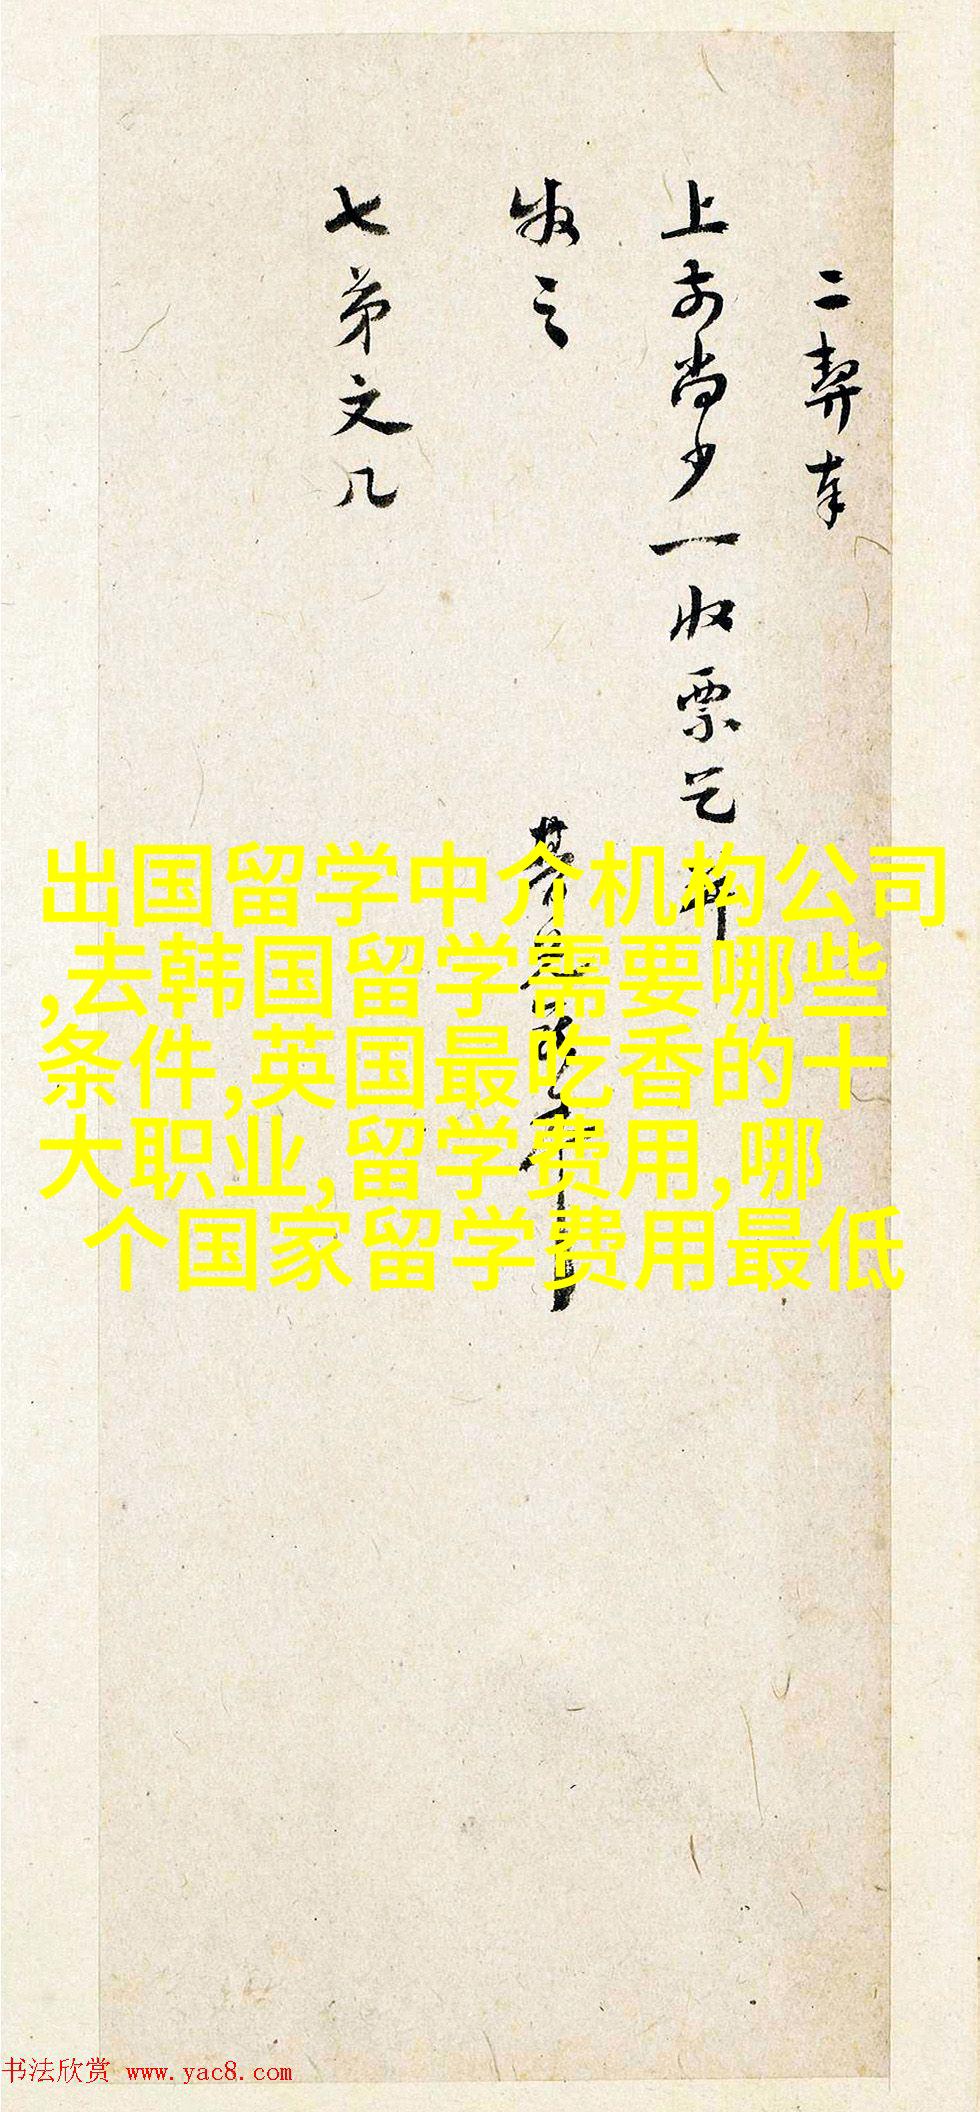 二契奉
上前尚少一收票乞
收之
七弟文几
出国留学中介机构公司
,去韩国留学需要哪些
条件,英国最吃香的十
大职业,留学费用,哪
个国家留学费用最低
书法欣赏 www.yac8.com